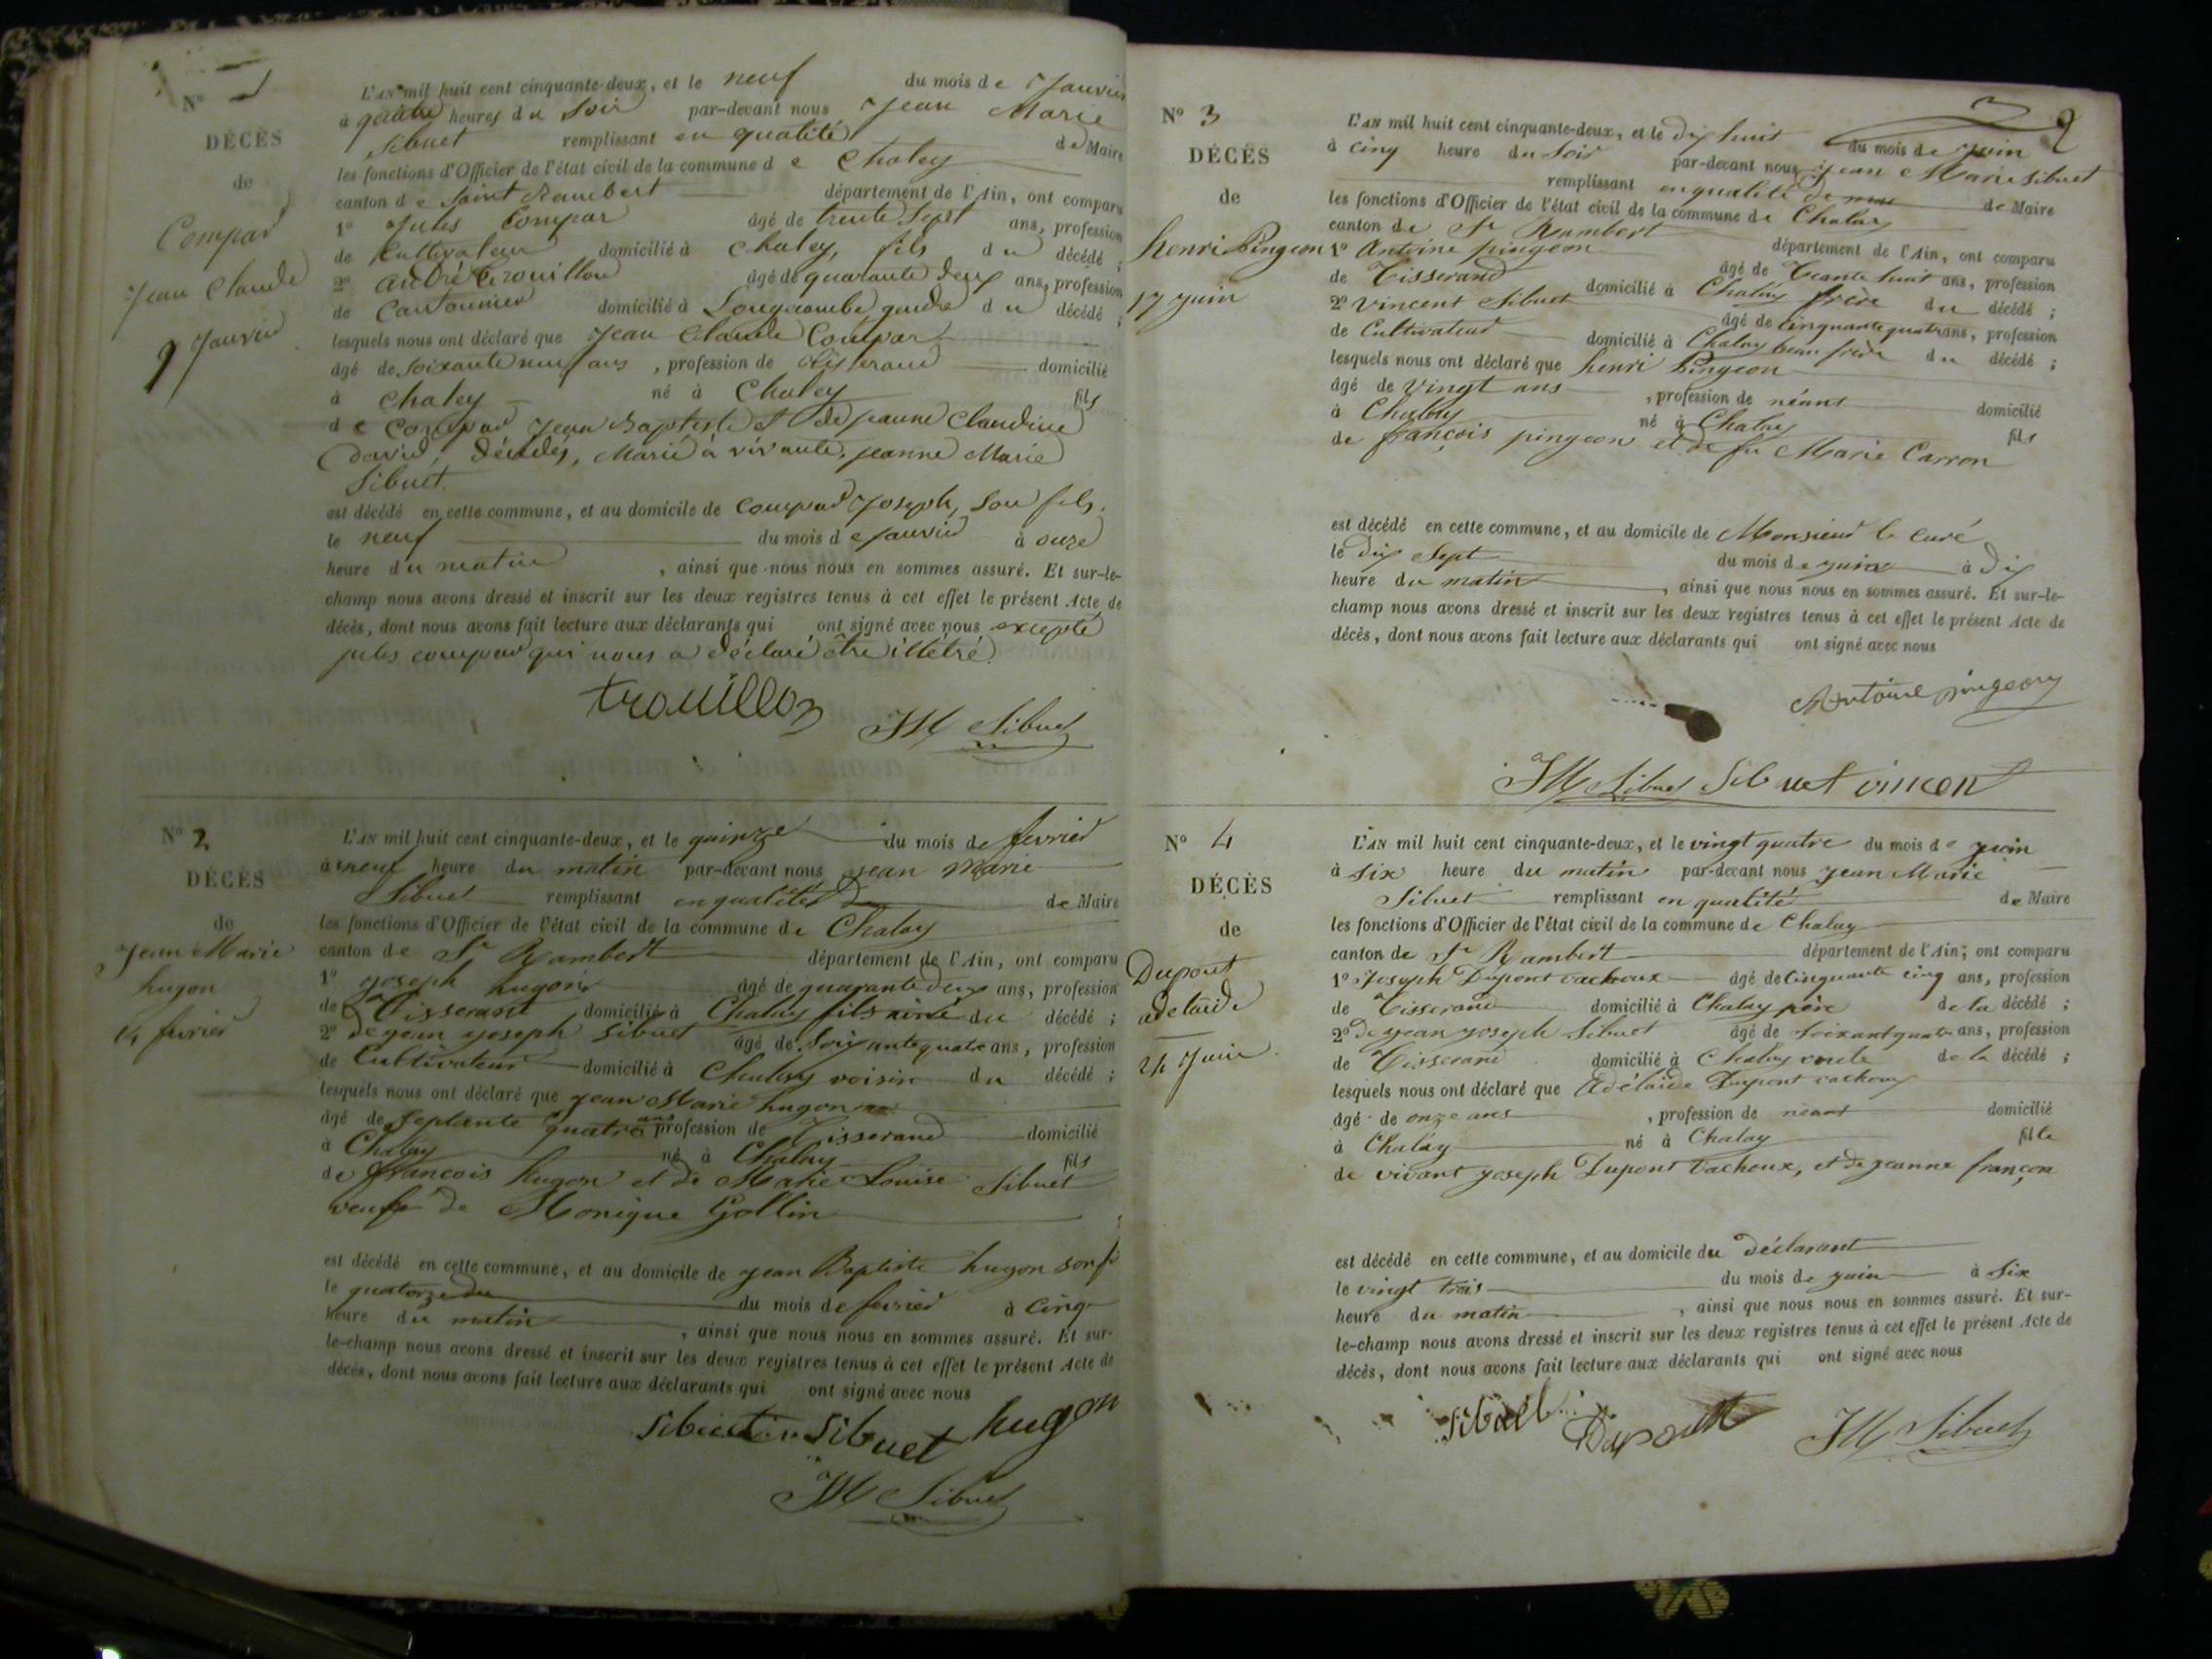 N° 1
DÉCÈS
de
Compar
Jean Claude
9 Janvier
L'AN mil huit cent cinquante-deux, et le neuf du mois de Janvier
à quatre heures du Soir par-devant nous Jean Marie
Sibuet remplissant en qualité de Maire
les fonctions d'Officier de l'état civil de la commune de Chaley
canton de Saint Rambert département de l'Ain, ont comparu
1° Jules Compar âgé de trente Sept ans, profession
de Cultivateur domicilié à Chaley, fils du décédé ;
2° André Trouillou âgé de quarante deux ans, profession
de Cantonnier domicilié à Longecombe, gendre du décédé ;
lesquels nous ont déclaré que Jean Claude Compar
âgé de soixante neuf ans , profession de tisserand domicilié
à Chaley né à Chaley fils
de Compar Jean Baptiste et de jeanne Claudine
David, décédés, Marié à vivante, jeanne Marie
Sibuet.
est décédé en cette commune, et au domicile de Compar Joseph, son fils.
le neuf du mois de Janvier à onze
heure du matin , ainsi que nous nous en sommes assuré. Et sur-le-
champ nous avons dressé et inscrit sur les deux registres tenus à cet effet le présent Acte de
décès, dont nous avons fait lecture aux déclarants qui ont signé avec nous excepté
jules compar qui nous a déclaré être illétré.
trouillon
JM Sibuet
N° 2
DÉCÈS
de
Jean Marie
hugon
14 fevrier
L'AN mil huit cent cinquante-deux, et le quinze du mois de fevrier
à neuf heure du matin par-devant nous jean Marie
Sibuet remplissant en qualité de de Maire
les fonctions d'Officier de l'état civil de la commune de Chaley
canton de St Rambert département de l'Ain, ont comparu
1° joseph hugon âgé de quarante deux ans, profession
de Tisserant domicilié à Chaley fils ainé du décédé ;
2° de jean joseph Sibuet âgé de Soixante quatre ans, profession
de Cultivateur domicilié à Chaley voisin du décédé ;
lesquels nous ont déclaré que jean Marie hugon
âgé de Septante quatre ans profession de Tisserand domicilié
à Chaley né à Chaley fils
de francois hugon et de Marie Louise Sibuet
veufe de Monique Gollin
est décédé en cette commune, et au domicile de jean Baptiste hugon son fi
le quatorze du du mois de fevrier à Cinq
heure du matin , ainsi que nous nous en sommes assuré. Et sur-
le-champ nous avons dressé et inscrit sur les deux registres tenus à cet effet le présent Acte de
décès, dont nous avons fait lecture aux déclarants qui ont signé avec nous
Sibuet hugon
JM Sibuet
2
N° 3
DÉCÈS
de
henri Pingeon
17 juin
L'AN mil huit cent cinquante-deux, et le dix huit du mois de juin
à cinq heure du Soir par-devant nous jean Marie Sibuet
remplissant en qualité de de Maire
les fonctions d'Officier de l'état civil de la commune de Chaley
canton de St Rambert département de l'Ain, ont comparu
1° Antoine pingeon âgé de Trante huit ans, profession
de Tisserand domicilié à Chaley frère du décédé ;
2° Vincent Sibuet âgé de cinquante quatr ans, profession
de Cultivateur domicilié à Chaley beau frère du décédé ;
lesquels nous ont déclaré que henri Pingeon
âgé de vingt ans , profession de néant domicilié
à Chaley né à Chaley fils
de françois pingeon et de fu Marie Carron
est décédé en cette commune, et au domicile de Monsieur le curé
le dix Sept du mois de juin à dix
heure du matin , ainsi que nous nous en sommes assuré. Et sur-le-
champ nous avons dressé et inscrit sur les deux registres tenus à cet effet le présent Acte de
décès, dont nous avons fait lecture aux déclarants qui ont signé avec nous
Antoine pingeon
JM Sibuet Sibuet vincent
N° 4
DÉCÈS
de
Dupont
adelaide
24 Juin
L'AN mil huit cent cinquante-deux, et le vingt quatre du mois de juin
à Six heure du matin par-devant nous jean Marie
Sibuet remplissant en qualité de Maire
les fonctions d'Officier de l'état civil de la commune de Chaley
canton de St Rambert département de l'Ain, ont comparu
1° Joseph Dupont vachoux âgé de Cinquante cinq ans, profession
de Tisserand domicilié à Chaley père de la décédé ;
2° de jean joseph Sibuet âgé de Soixant quatr ans, profession
de Tisserand domicilié à Chaley oncle de la décédé ;
lesquels nous ont déclaré que Adélaide Dupont vachoux
âgé de onze ans , profession de néant domicilié
à Chaley né à Chaley fille
de vivant joseph Dupont Vachoux, et de jeanne françon
est décédé en cette commune, et au domicile du déclarant
le vingt trois du mois de juin à Six
heure du matin , ainsi que nous nous en sommes assuré. Et sur-
le-champ nous avons dressé et inscrit sur les deux registres tenus à cet effet le présent Acte de
décès, dont nous avons fait lecture aux déclarants qui ont signé avec nous
Sibuet Dupont JM Sibuet